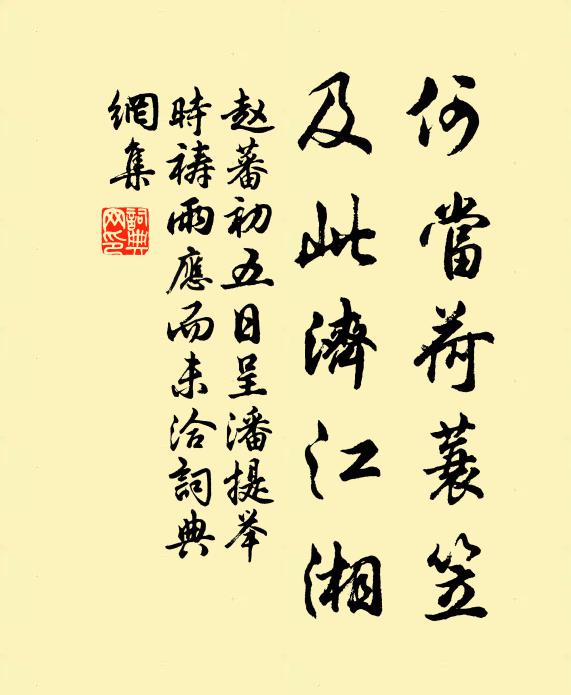 何當荷蓑笠
及此濟江湘
赵蕃初五日呈潘提举
時祷雨應而未洽詞典
網集
詞典網印